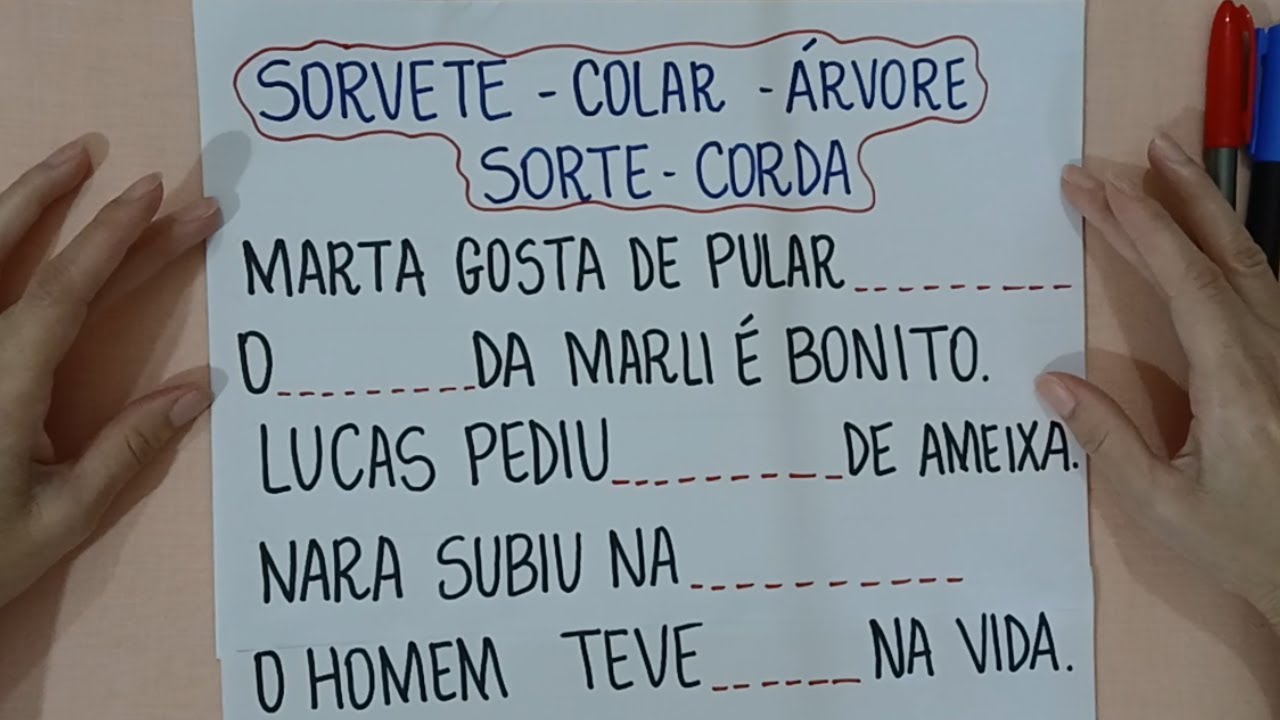 SORVETE - COLAR - ÁRVORE
SORTE - CORDA
MARTA GOSTA DE PULAR _________
O ________ DA MARLI É BONITO.
LUCAS PEDIU _________ DE AMEIXA.
NARA SUBIU NA __________
O HOMEM TEVE ______ NA VIDA.